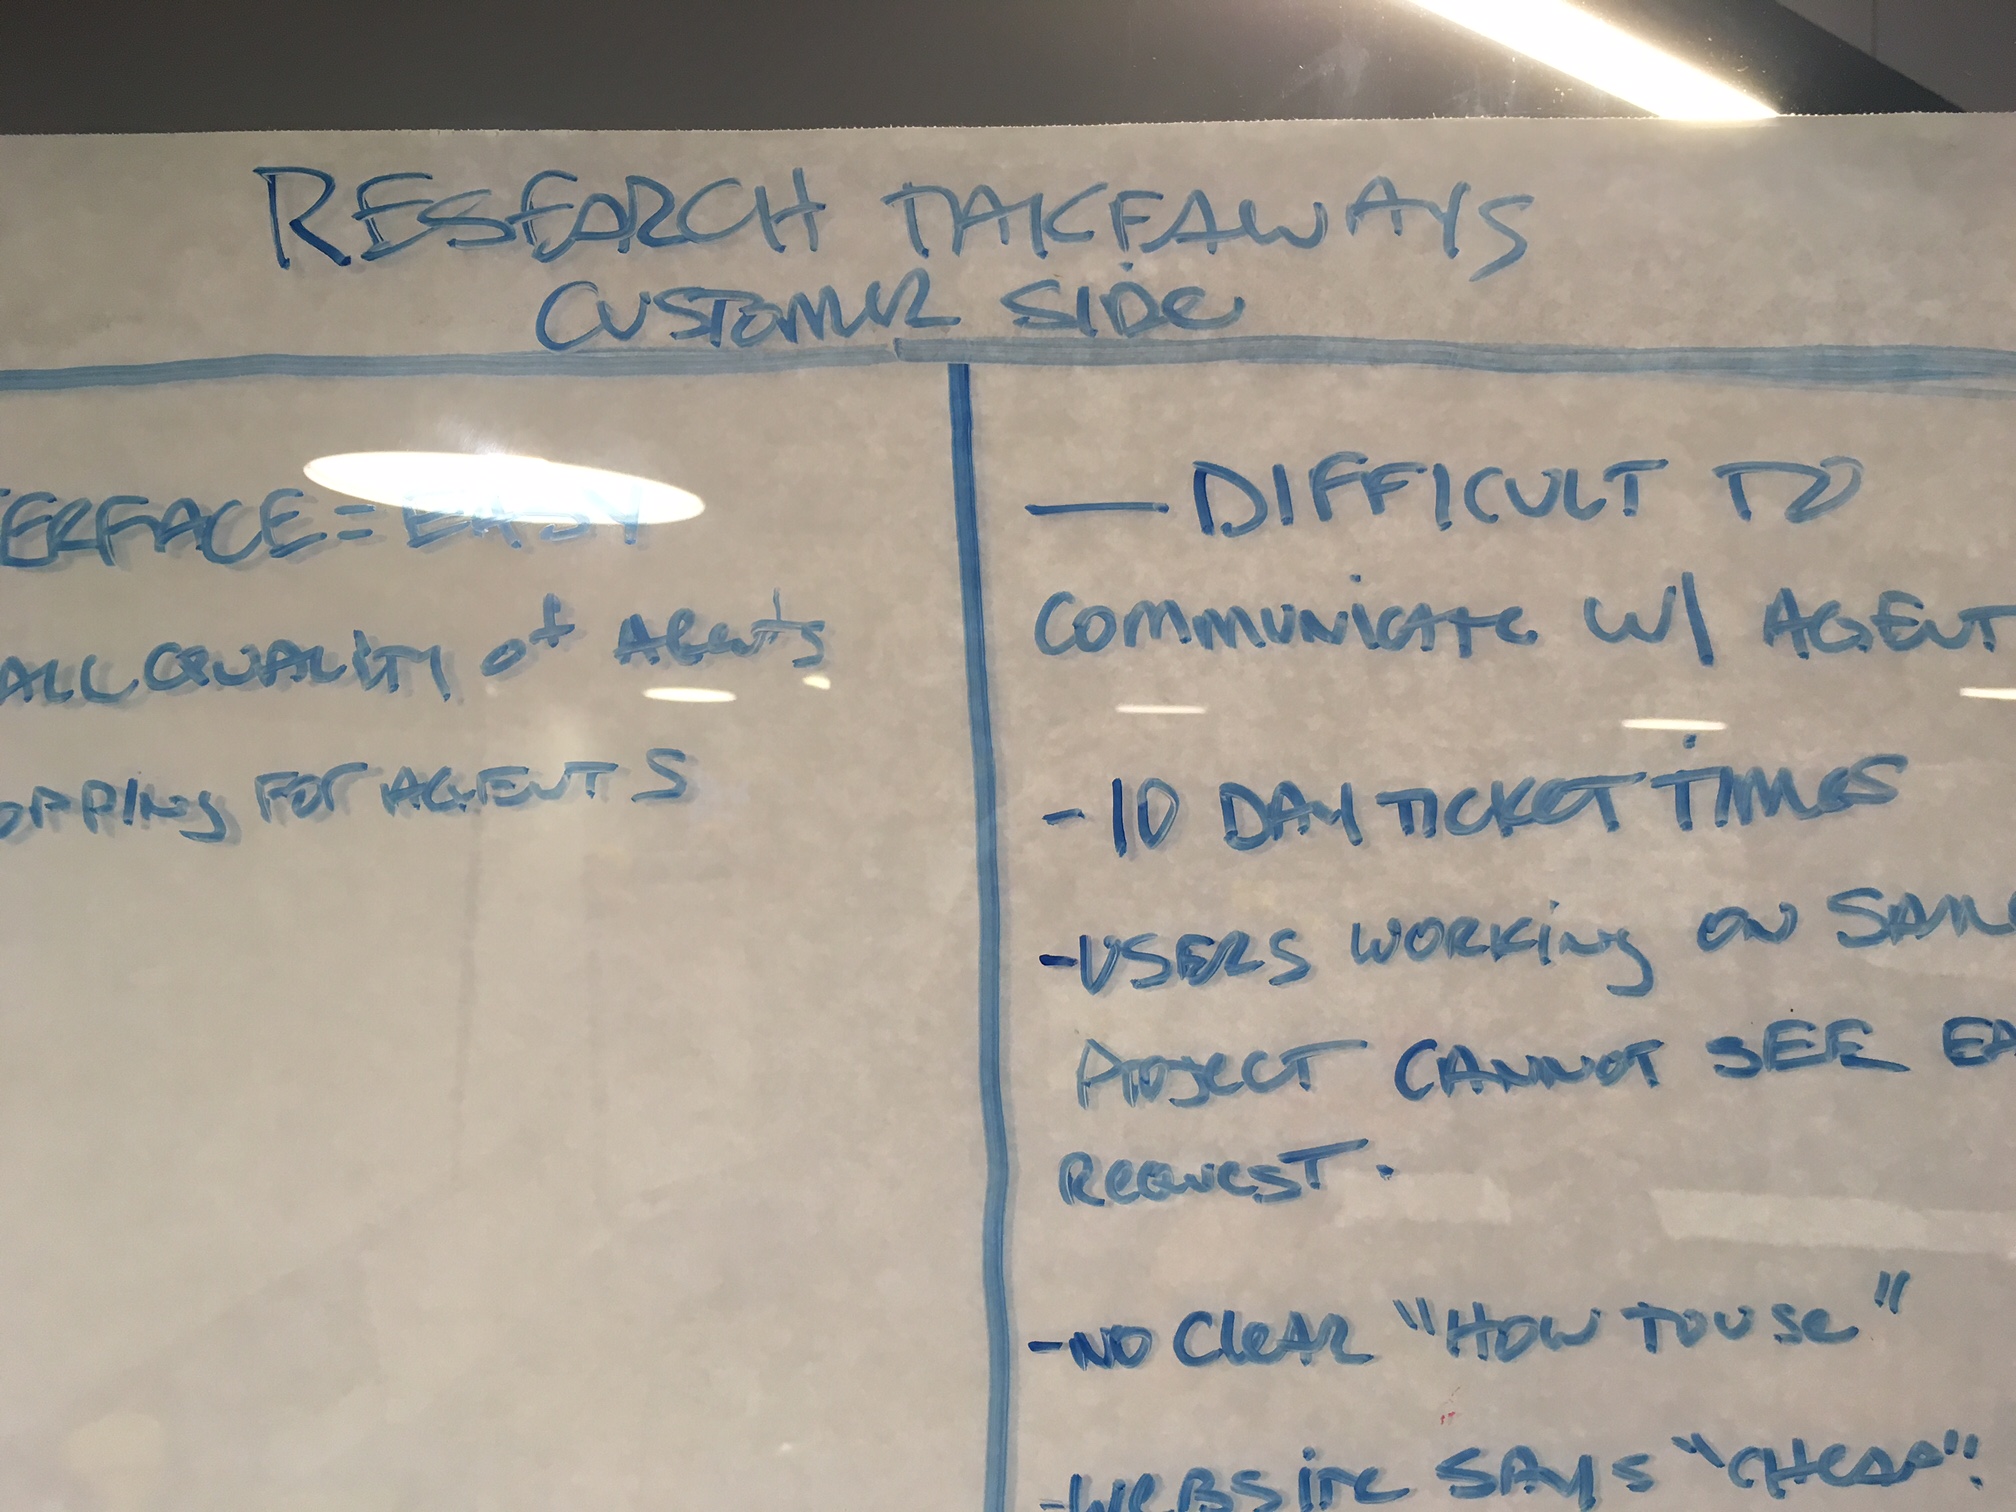 RESEARCH TAKEAWAYS
CUSTOMER SIDE
TERFACE = EASY
ALL QUALITY of AGENTS
OPPING FOR AGENTS
— DIFFICULT TO
COMMUNICATE W/ AGENT
- 10 DAY TICKET TIMES
- USERS WORKING ON SAME
PROJECT CANNOT SEE EA
REQUEST.
- NO CLEAR "HOW TO USE"
- WEBSITE SAYS "CHEAP".